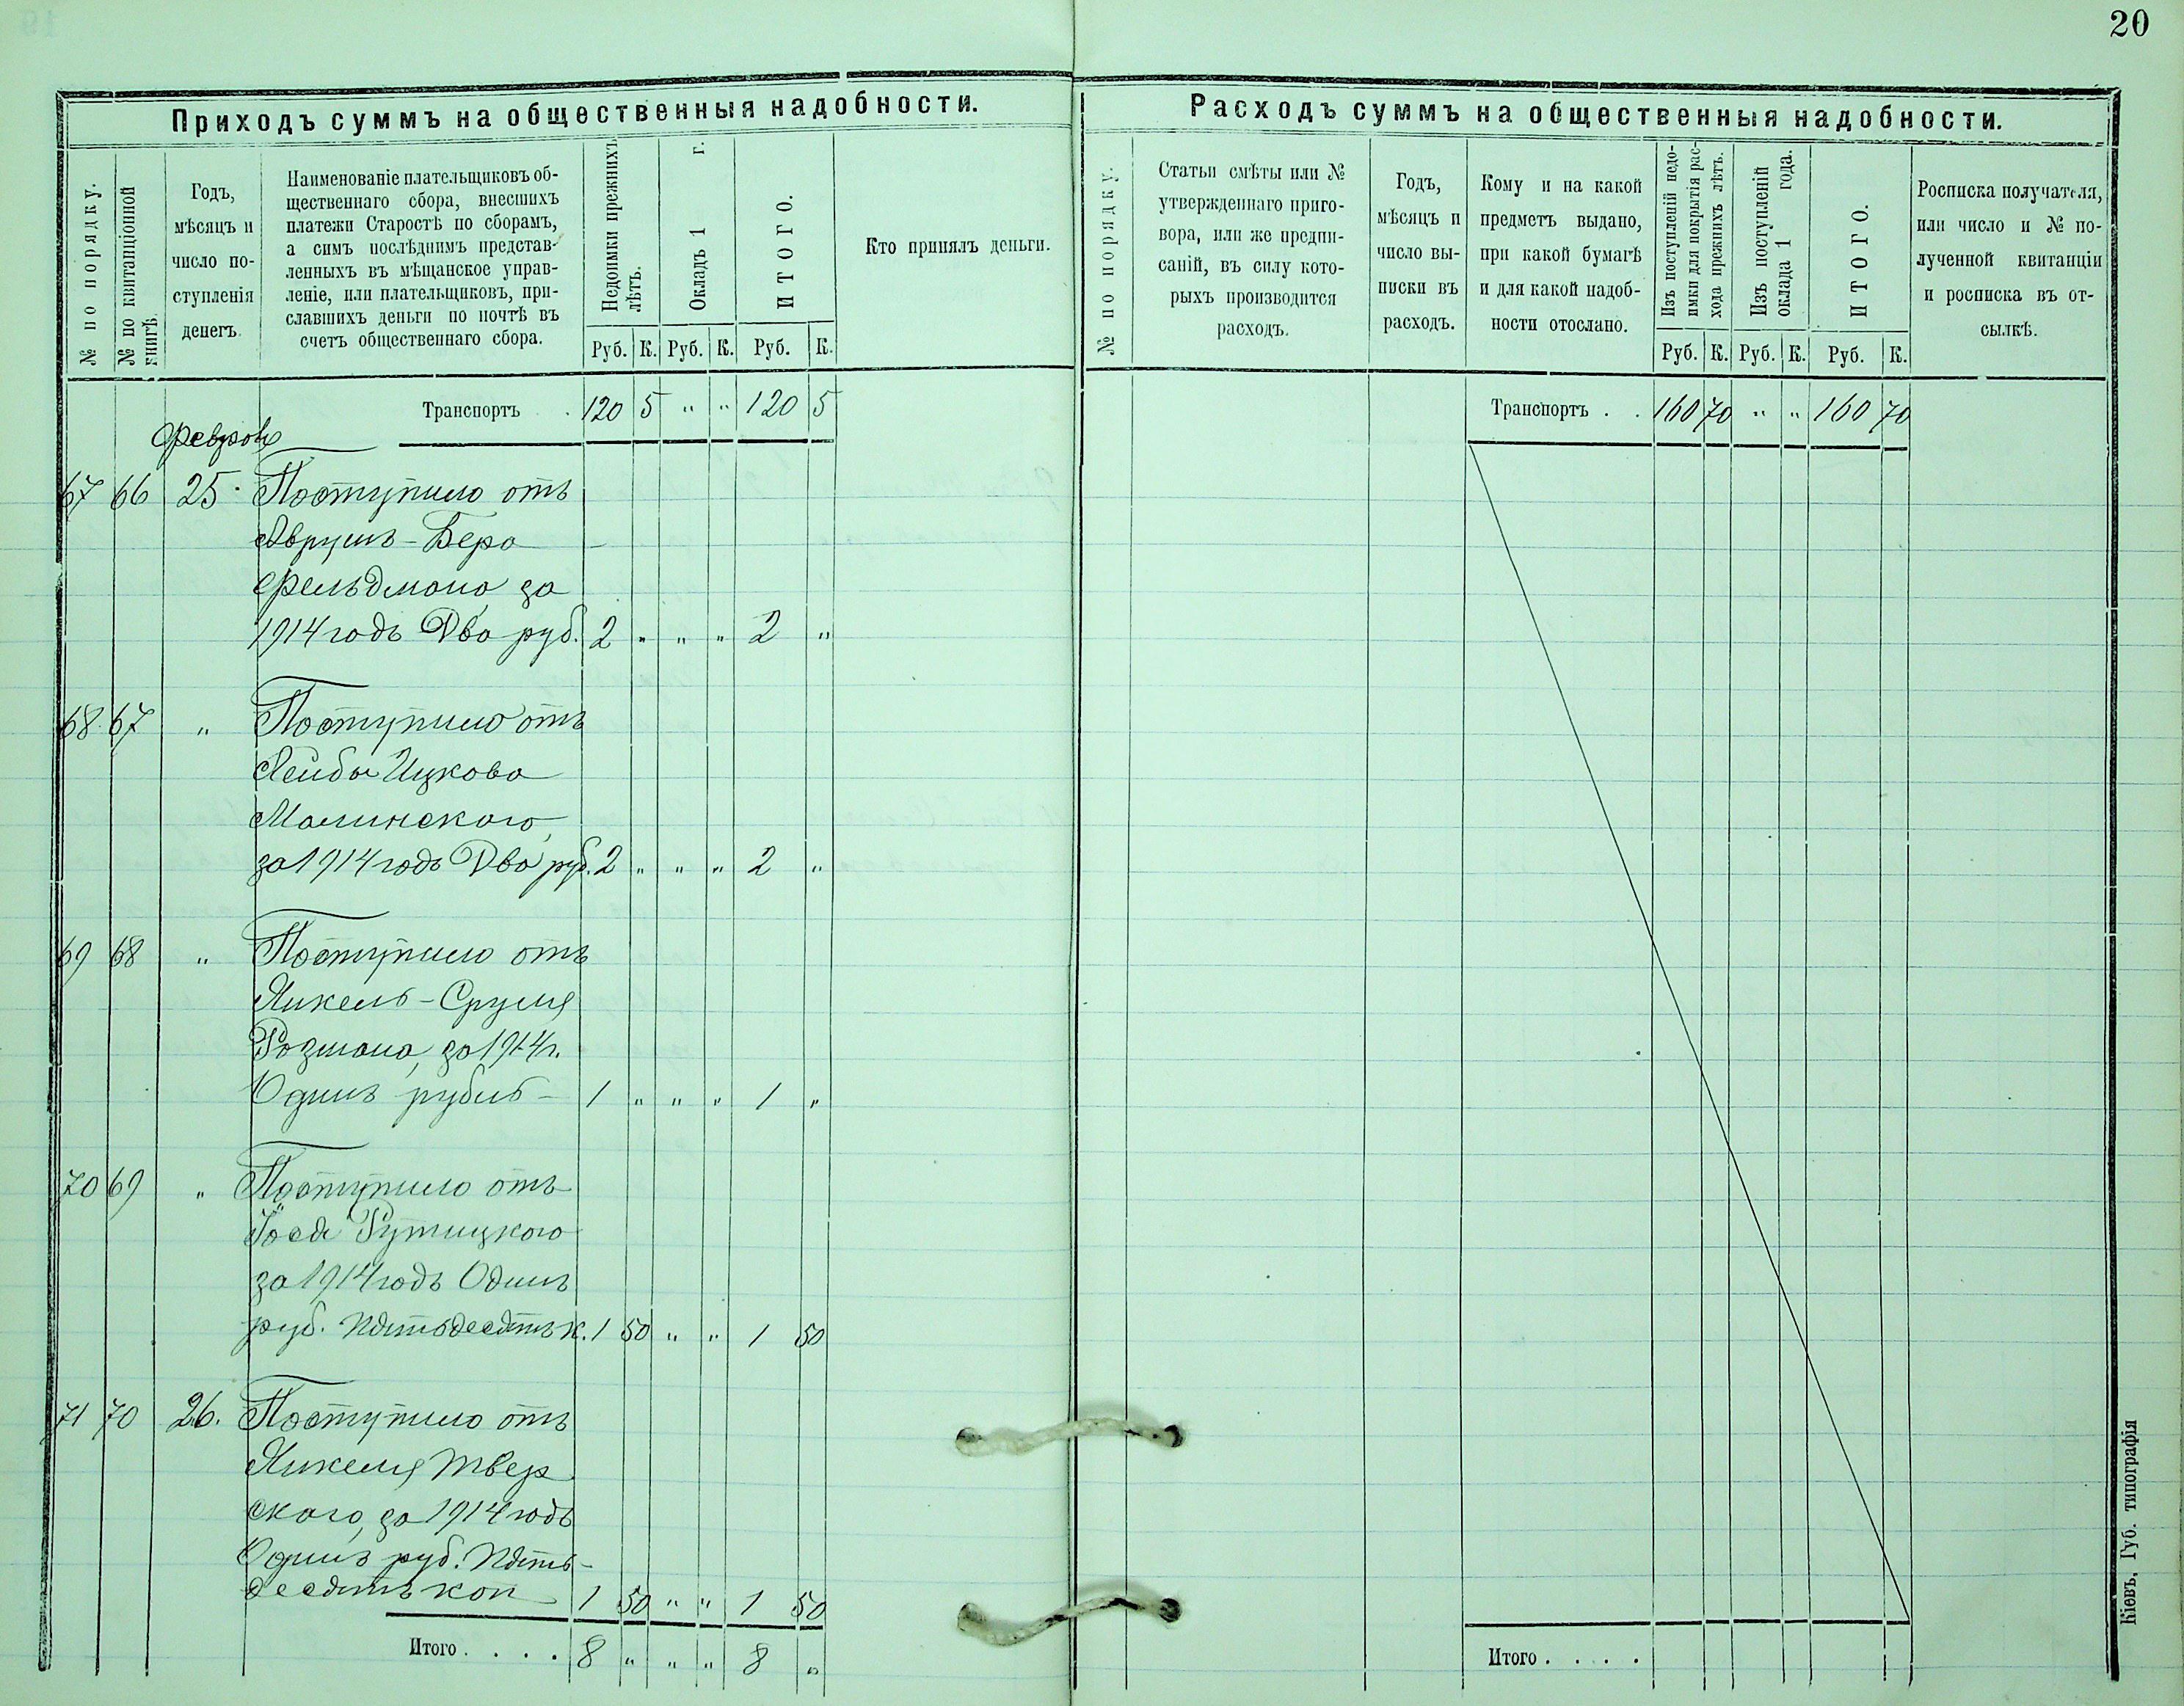 20
Приходъ суммъ на общественныя надобности.
№ по порядку.
№ по квитанціонной книгѣ.
Годъ,
мѣсяцъ и
число по-
ступленія
денегъ.
Наименованіе плательщиковъ об-
щественнаго сбора, внесшихъ
платежи Старостѣ по сборамъ,
а симъ послѣднимъ представ-
ленныхъ въ мѣщанское управ-
леніе, или плательщиковъ, при-
славшихъ деньги по почтѣ въ
счетъ общественнаго сбора.
Недоимки прежнихъ
лѣтъ.
Окладъ 1 г.
ИТОГО.
Кто принялъ деньги.
Руб. К. Руб. К. Руб. К.
Транспортъ . . 120 5 " " 120 5
Февраль
67 66 25. Поступило отъ
Аврумъ-Бера
Фельдмана за
1914 годъ Два руб. 2 " " " 2 "
68. 67 " Поступило отъ
Лейбы Ицкова
Малинскаго,
за 1914 годъ Два руб. 2 " " " 2 "
69 68 " Поступило отъ
Янкель-Сруля
Розмана, за 1914 г.
Одинъ рубль - 1 " " " 1 "
70 69 " Поступило отъ
Іося Рутицкаго
за 1914 годъ Одинъ
руб. пятьдесятъ к. 1 50 " " 1 50
71 70 26. Поступило отъ
Янкеля Твер
скаго, за 1914 годъ
Одинъ руб. пять-
десятъ коп 1 50 " " 1 50
Итого . . . . 8 " " " 8 "
Расходъ суммъ на общественныя надобности.
№ по порядку.
Статьи смѣты или №
утвержденнаго приго-
вора, или же предпи-
саній, въ силу кото-
рыхъ производится
расходъ.
Годъ,
мѣсяцъ и
число вы-
писки въ
расходъ.
Кому и на какой
предметъ выдано,
при какой бумагѣ
и для какой надоб-
ности отослано.
Изъ поступленій недо-
имки для покрытія рас-
хода прежнихъ лѣтъ.
Изъ поступленій
оклада 1 года.
ИТОГО.
Росписка получателя,
или число и № по-
лученной квитанціи
и росписка въ от-
сылкѣ.
Руб. К. Руб. К. Руб. К.
Транспортъ . . 160 70 " " 160 70
Итого . . . .
Кіевъ, Губ. типографія